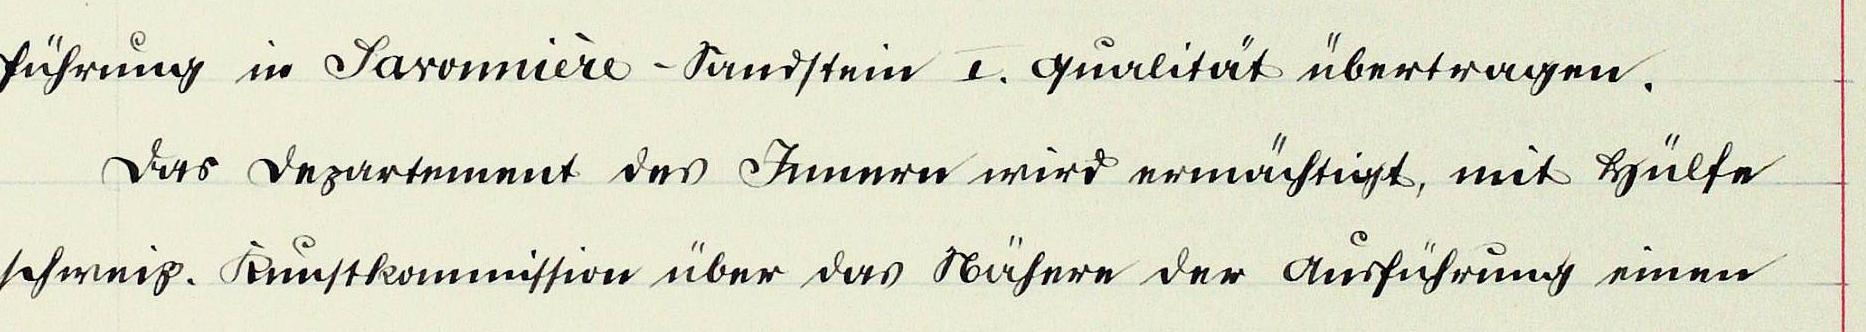 führung in Savonnière-Sandstein I. Qualität übertragen.
Das Departement des Innern wird ermächtigt, mit Hülfe
schweiz. Kunstkommission über das Nähere der Ausführung einen